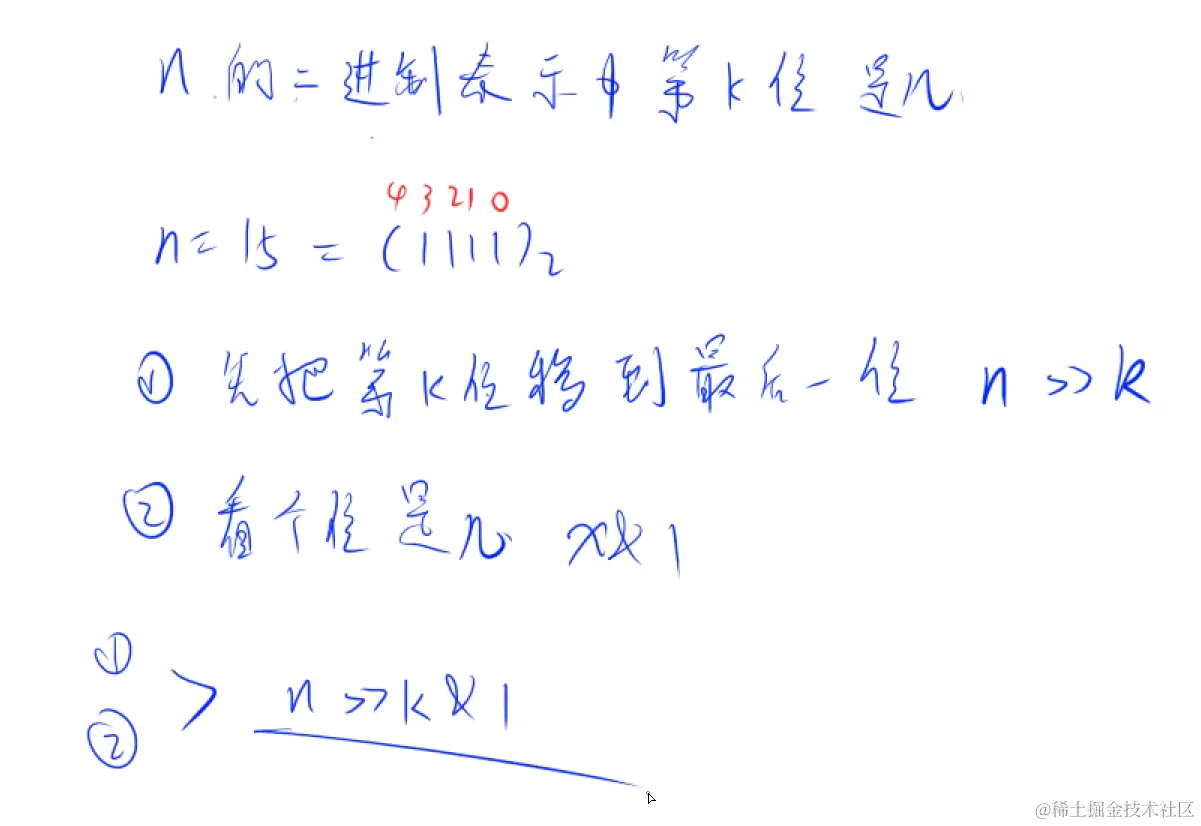 n的二进制表示中第k位是几
4 3 2 1 0
n = 15 = (1111)₂
① 先把第k位移到最后一位 n >> k
② 看个位是几 x & 1
①
② > n >> k & 1
@稀土掘金技术社区